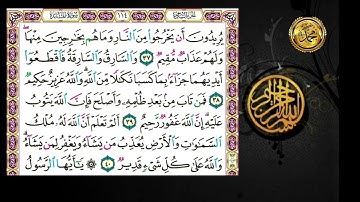 الجزء السادس ١١٤ سورة المائدة
يُرِيدُونَ أَن يَخْرُجُوا۟ مِنَ ٱلنَّارِ وَمَا هُم بِخَٰرِجِينَ مِنْهَا
وَلَهُمْ عَذَابٌ مُّقِيمٌ ٣٧ وَٱلسَّارِقُ وَٱلسَّارِقَةُ فَٱقْطَعُوٓا۟
أَيْدِيَهُمَا جَزَآءًۢ بِمَا كَسَبَا نَكَٰلًا مِّنَ ٱللَّهِ وَٱللَّهُ عَزِيزٌ حَكِيمٌ
٣٨ فَمَن تَابَ مِنۢ بَعْدِ ظُلْمِهِۦ وَأَصْلَحَ فَإِنَّ ٱللَّهَ يَتُوبُ
عَلَيْهِ إِنَّ ٱللَّهَ غَفُورٌ رَّحِيمٌ ٣٩ أَلَمْ تَعْلَمْ أَنَّ ٱللَّهَ لَهُۥ مُلْكُ
ٱلسَّمَٰوَٰتِ وَٱلْأَرْضِ يُعَذِّبُ مَن يَشَآءُ وَيَغْفِرُ لِمَن يَشَآءُ
وَٱللَّهُ عَلَىٰ كُلِّ شَىْءٍ قَدِيرٌ ٤٠ يَٰٓأَيُّهَا ٱلرَّسُولُ
محمد